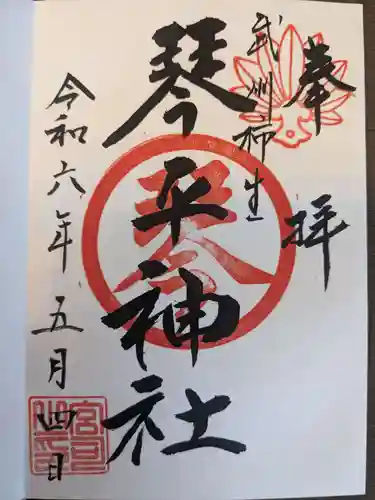 奉拝
武州柿生
琴平神社
令和六年五月四日
金
宮司